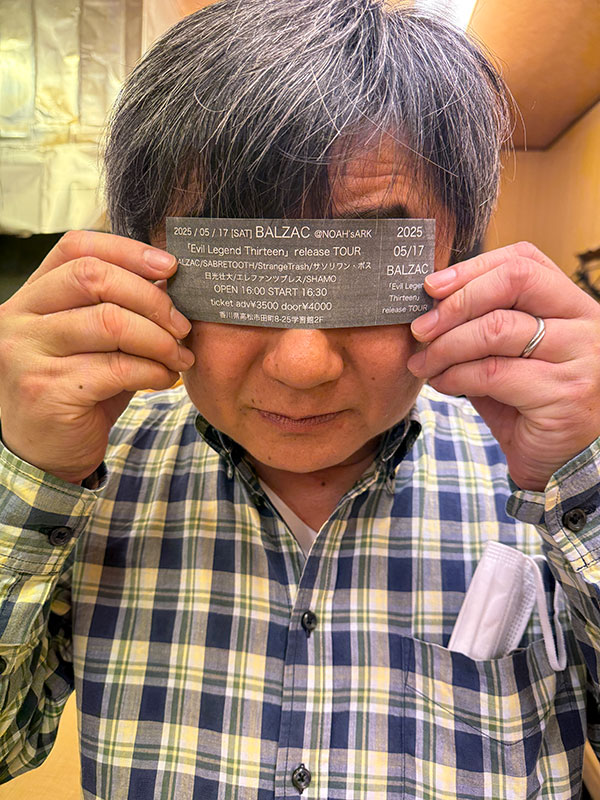 2025 / 05 / 17 [SAT] BALZAC @NOAH'sARK
「Evil Legend Thirteen」 release TOUR
BALZAC/SABRETOOTH/StrangeTrash/サソリワン・ボス
日光壮大/エレファンツプレス/SHAMO
OPEN 16:00 START 16:30
ticket adv¥3500 door¥4000
香川県高松市田町8-25学育館2F
2025
05/17
BALZAC
「Evil Legend
Thirteen」
release TOUR